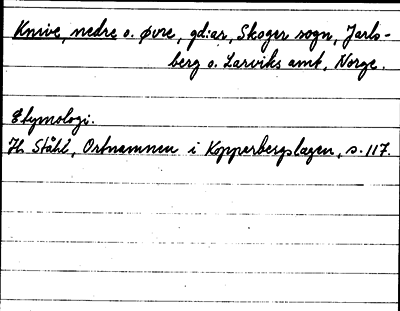 Knive, nedre o. øvre, gd:ar, Skoger sogn, Jarls-
berg o. Larviks amt, Norge.
Etymologi.
H. Ståhl, Ortnamnen i Kopparbergslagen, s. 117.